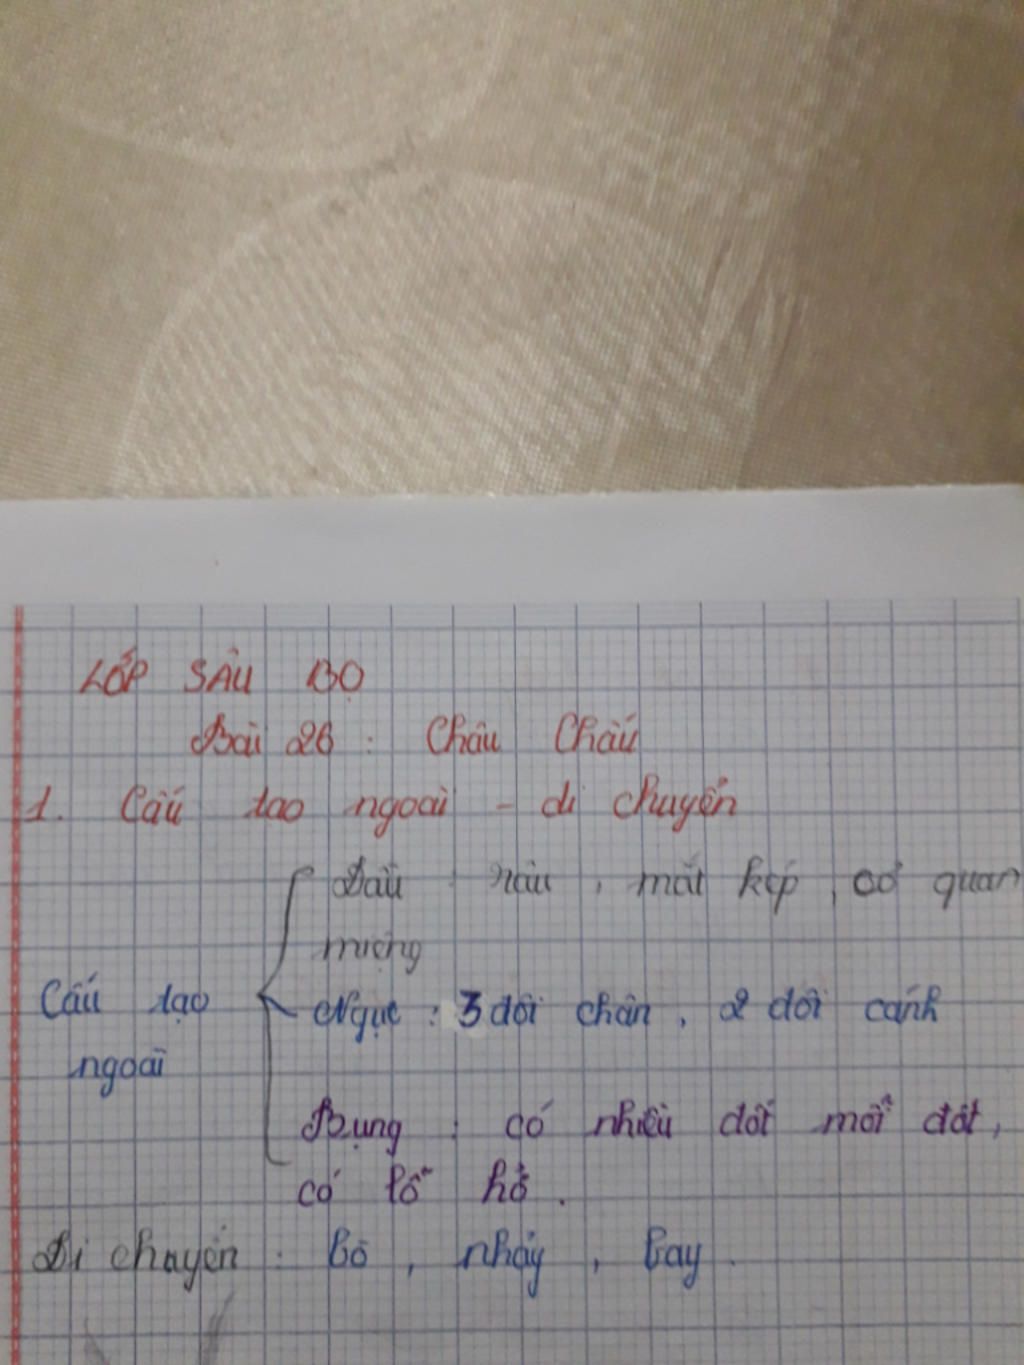 LỚP SÂU BỌ
Bài 26 : Châu Chấu
1. Cấu tạo ngoài - di chuyển
Đầu : râu , mắt kép , cơ quan
miệng
Cấu tạo
Ngực : 3 đôi chân , 2 đôi cánh
ngoài
Bụng : có nhiều đốt mỗi đốt,
có lỗ hở .
Di chuyển : bò , nhảy , bay .